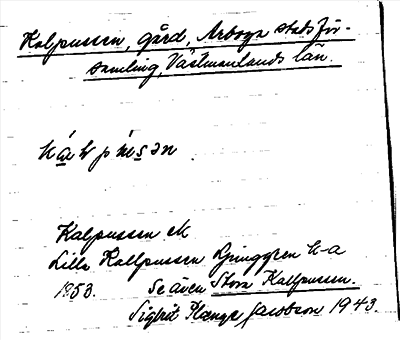 Kalpussen, gård, Arboga stadsför-
samling, Västmanlands län.
Kalpussen ek
Lilla Kallpussen Ljunggren k-a
1853. Se även Stora Kallpussen.
Sigbrit Plænge Jacobson 1943.